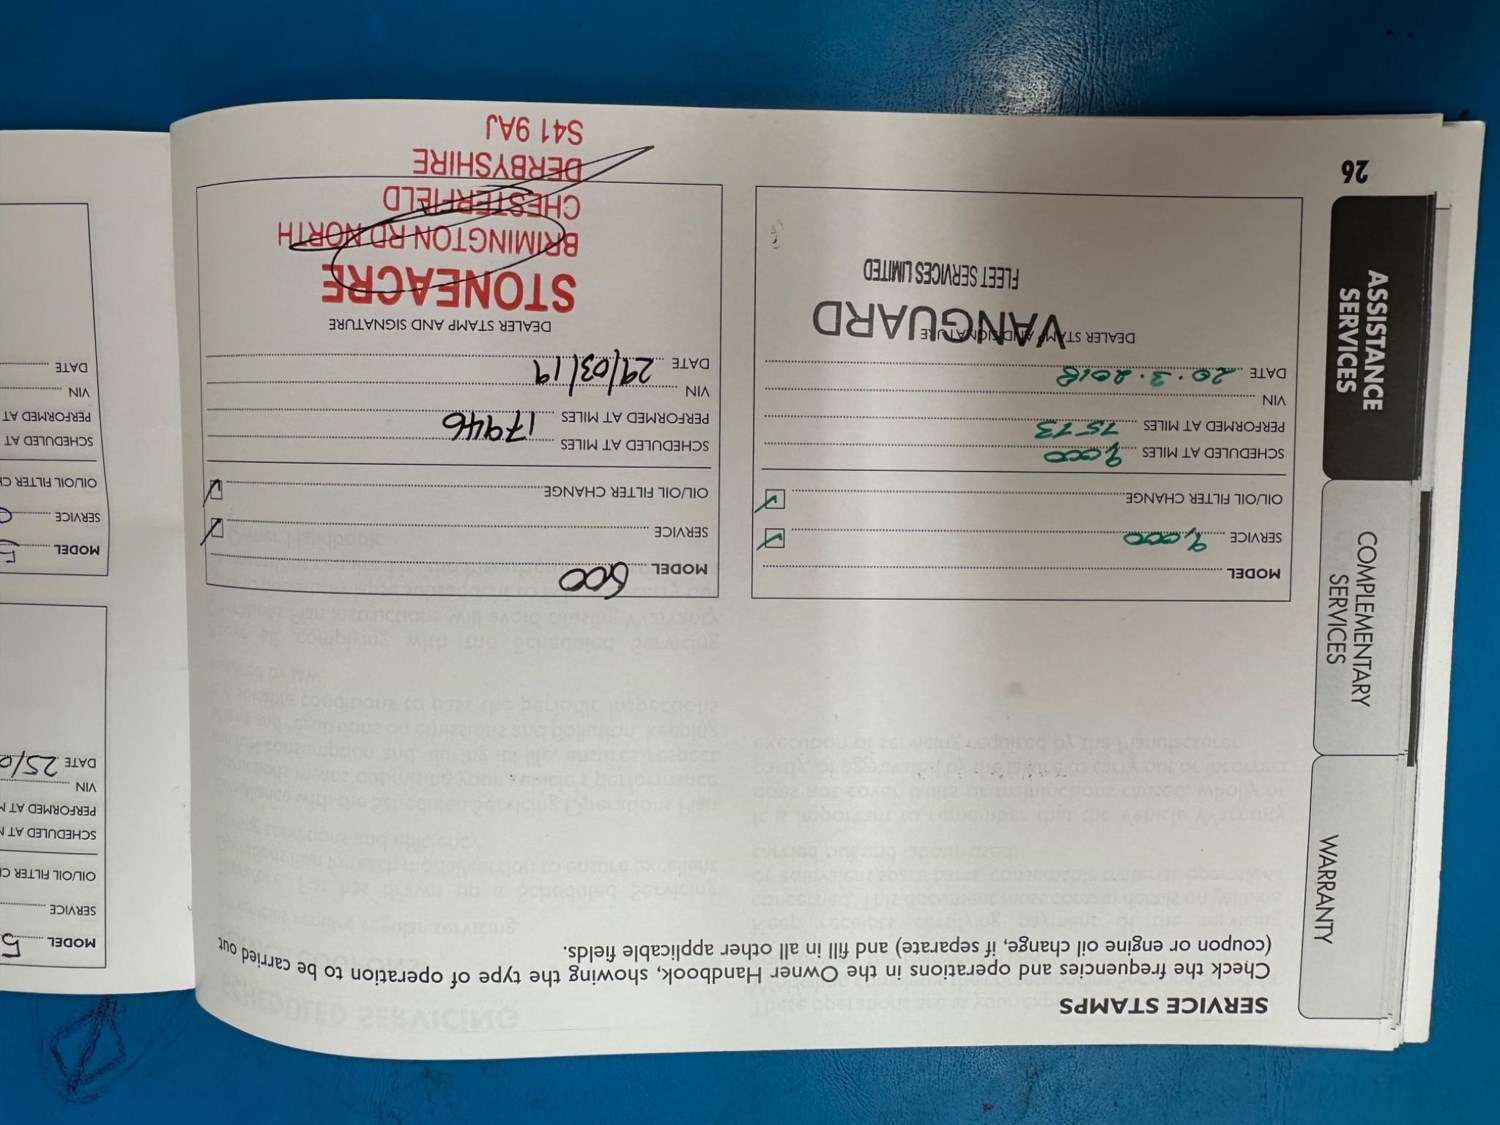 SERVICE STAMPS
Check the frequencies and operations in the Owner Handbook, showing the type of operation to be carried out
(coupon or engine oil change, if separate) and fill in all other applicable fields.
MODEL
SERVICE 9,000
OIL/OIL FILTER CHANGE
SCHEDULED AT MILES 9,000
PERFORMED AT MILES 7573
VIN
DATE 20.3.2018
DEALER STAMP AND SIGNATURE
VANGUARD
FLEET SERVICES LIMITED
MODEL 500
SERVICE
OIL/OIL FILTER CHANGE
SCHEDULED AT MILES
PERFORMED AT MILES 17946
VIN
DATE 29/03/19
DEALER STAMP AND SIGNATURE
STONEACRE
BRIMINGTON RD NORTH
CHESTERFIELD
DERBYSHIRE
S41 9AJ
MODEL 5
SERVICE
OIL/OIL FILTER C
SCHEDULED AT M
PERFORMED AT M
VIN
DATE 25/0
MODEL
SERVICE
OIL/OIL FILTER CH
SCHEDULED AT
PERFORMED AT
VIN
DATE
WARRANTY
COMPLEMENTARY
SERVICES
ASSISTANCE
SERVICES
26